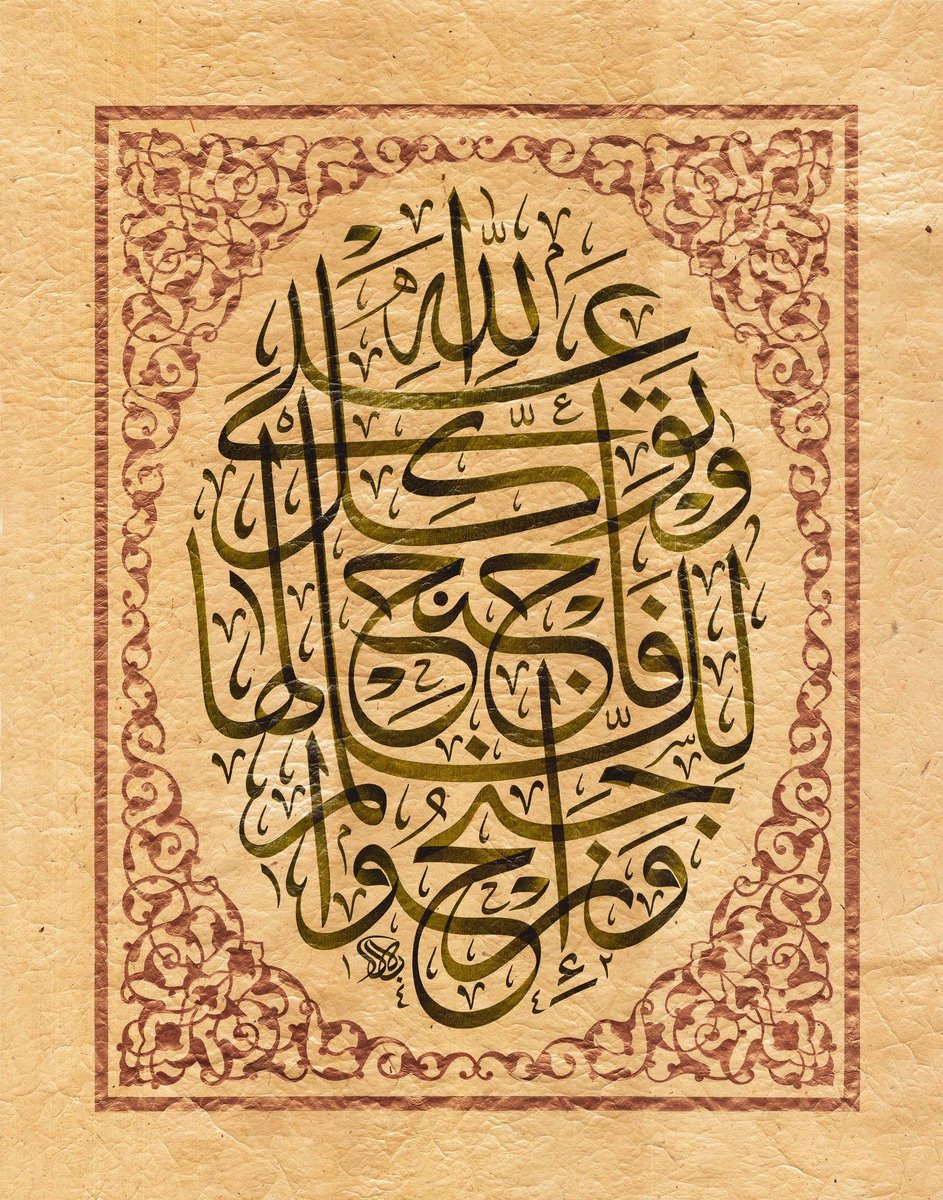 وَإِنْ جَنَحُوا
لِلسَّلْمِ فَاجْنَحْ لَهَا
وَتَوَكَّلْ عَلَى اللَّهِ
١٤٤٢